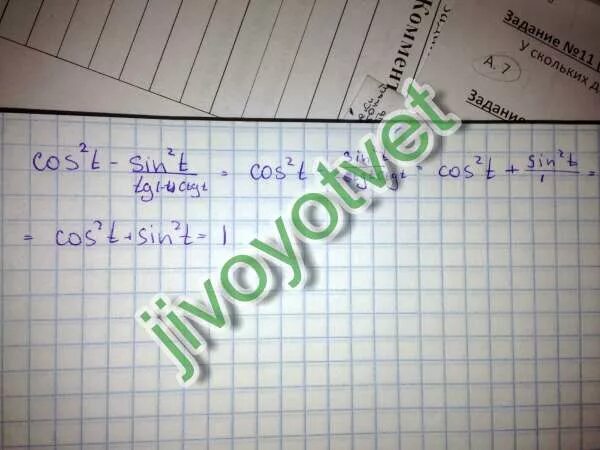 Коммент
Задание №11
У скольких д
А. 7
Задание
cos²t - sin²t / tg(-t)ctgt = cos²t sin²t / = cos²t + sin²t / 1 =
= cos²t + sin²t = 1
jivoyotvet